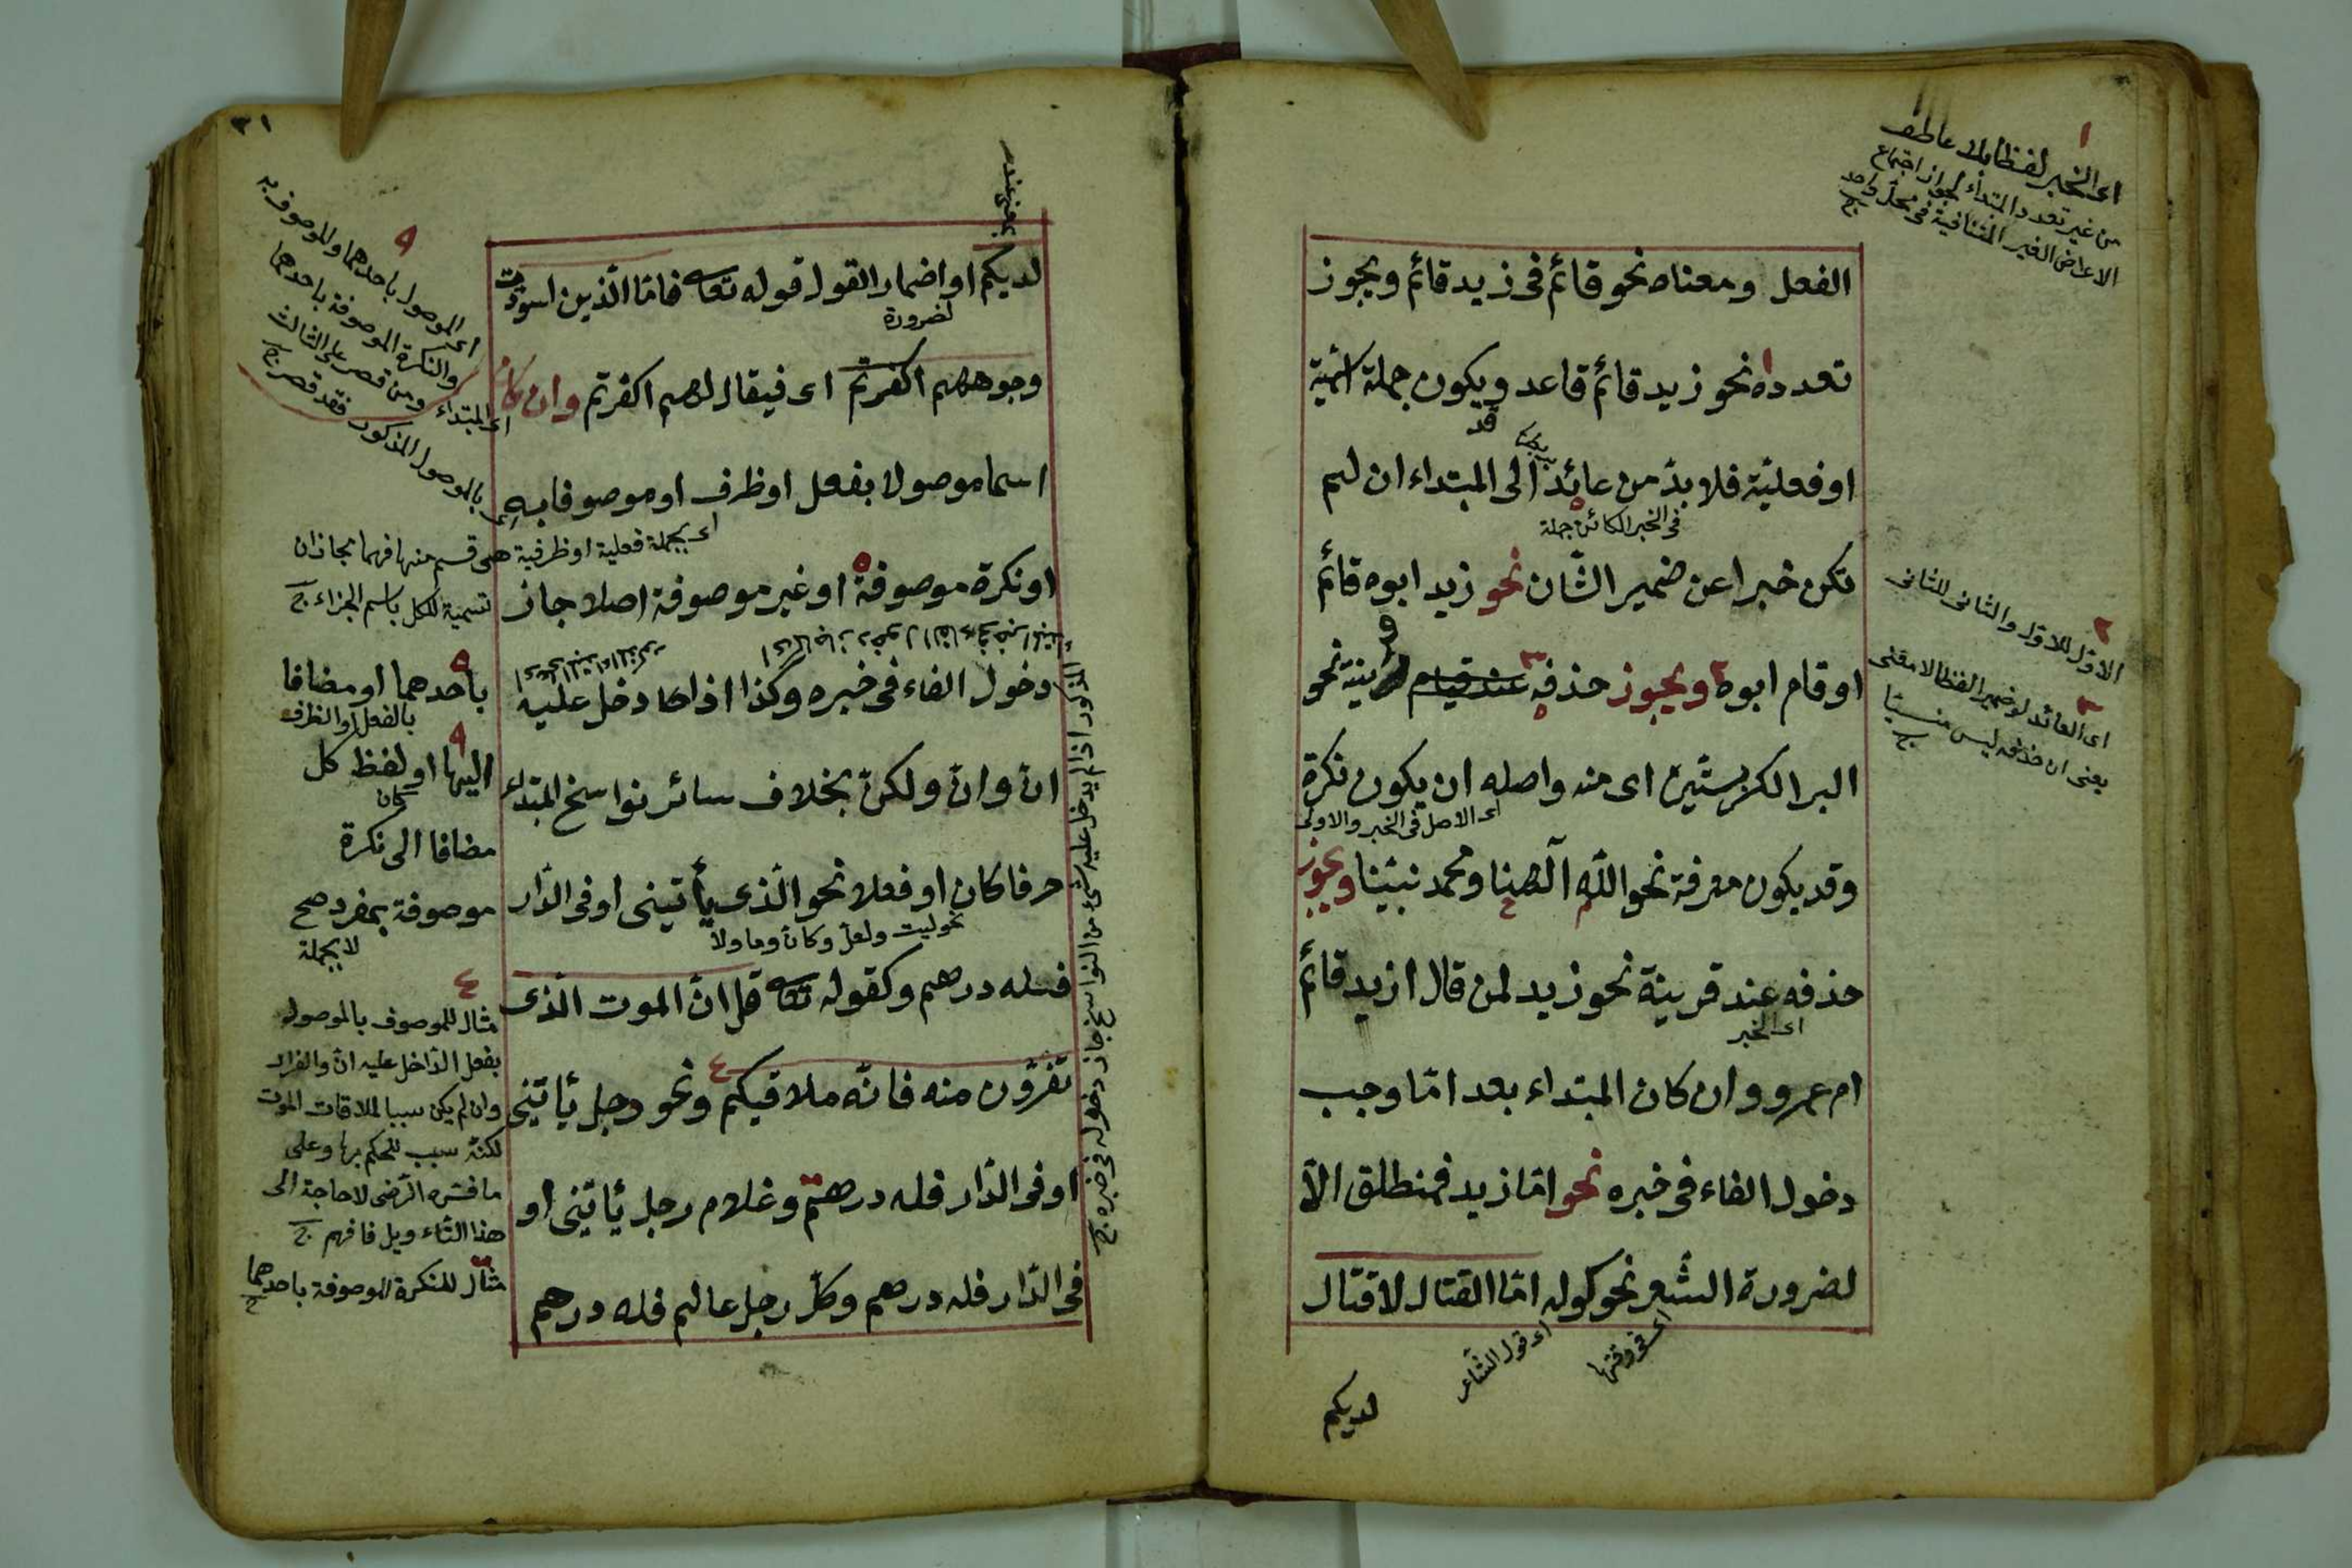 الفعل ومعناه نحو قائم فى زيد قائم ويجوز
تعدده نحو زيد قائم قاعد ويكون جملة اسمية
قد
او فعلية فلا بدّ من عائد الى المبتداء ان لم
فى الخبر الكائن جملة
تكن خبرا عن ضمير الشّان نحو زيد ابوه قائم
او قام ابوه ويجوز حذفه عند قيام قرينة نحو
البر الكر بستّين اى منه واصله ان يكون نكرة
اى الاصل فى الخبر والاولى
وقد يكون معرفة نحو اللّه آلهنا ومحمد نبيّنا ويجوز
حذفه عند قرينة نحو زيد لمن قال ازيد قائم
اى الخبر
ام عمرو وان كان المبتداء بعد امّا وجب
دخول الفاء فى خبره نحو امّا زيد فمنطلق الّا
لضرورة الشّعر نحو كوله امّا القتال لا قتال
اى قول الشّاعر
لديكم
١
اى الخبر لفظا بلا عاطف
من غير تعدد المبتداء لجواز اجتماع
الاعراض الغير المتنافية فى محلّ واحد
٢
الاوّل للاوّل والثّانى للثّانى
٣
اى العائد لو ضميرا لفظا لا مقنى
يعنى ان حذفه ليس منسيّا
لديكم او اضمار القول قوله تعالى فامّا الّذين اسودّت
لضرورة
وجوههم اكفرتم اى فيقال لهم اكفرتم وان كان
اى المبتداء
اسما موصولا بفعل او ظرف او موصوفا به
اى بالموصول المذكور
اى بجملة فعلية او ظرفية هى قسم منها فهما مجازان
او نكرة موصوفة او غير موصوفة اصلا جاز
تسمية للكل باسم الجزاء
دخول الفاء فى خبره وكذا اذا دخل عليه
انّ وانّ ولكنّ بخلاف سائر نواسخ المبتداء
حرفا كان او فعلا نحو الّذى يأتينى او فى الدّار
نحو ليت ولعلّ وكانّ وما ولا
فله درهم وكقوله تعالى قل انّ الموت الّذى
تفرّون منه فانّه ملاقيكم ونحو رجل يأتينى
او فى الدّار فله درهم وغلام رجل يأتينى او
فى الدّار فله درهم وكلّ رجل عالم فله درهم
٣١
اى الموصول باحدهما والموصوف به
والنكرة الموصوفة باحدهما
ومن قصر على الثالث
فقد قصر
باحدهما او مضافا
بالفعل او الظرف
اليها او لفظ كل
كان
مضافا الى نكرة
موصوفة بمفرد صح
لا بجملة
٤
مثال للموصوف بالموصول
بفعل الدّاخل عليه انّ والفرار
وان لم يكن سببا لملاقات الموت
لكنّه سبب للحكم بها وعلى
ما فسّره الرّضى لا حاجة الى
هذا التّاءويل فافهم
مثال للنكرة الموصوفة باحدهما
المذكور اذا لم يدخل عليه شئ من النواسخ جاز دخوله فى خبره